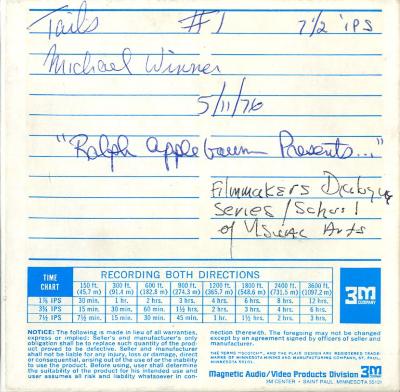 Tails #1 7 1/2 IPS
Michael Winner
5/11/76
"Ralph Applebaum Presents..."
Filmmakers Dialogue
Series/School
of Visual Arts
TIME CHART
RECORDING BOTH DIRECTIONS
150 ft. (45,7 m) 300 ft. (91,4 m) 600 ft. (182,8 m) 900 ft. (274,3 m) 1200 ft. (365,7 m) 1800 ft. (548,6 m) 2400 ft. (731,5 m) 3600 ft. (1097,2 m)
1⅞ IPS 30 min. 1 hr. 2 hrs. 3 hrs. 4 hrs. 6 hrs. 8 hrs. 12 hrs.
3¾ IPS 15 min. 30 min. 60 min. 1½ hrs. 2 hrs. 3 hrs. 4 hrs. 6 hrs.
7½ IPS 7½ min. 15 min. 30 min. 45 min. 1 hr. 1½ hrs. 2 hrs. 3 hrs.
3M
COMPANY
NOTICE: The following is made in lieu of all warranties,
express or implied: Seller's and manufacturer's only
obligation shall be to replace such quantity of the prod-
uct proved to be defective. Seller and manufacturer
shall not be liable for any injury, loss or damage, direct
or consequential, arising out of the use of or the inability
to use the product. Before using, user shall determine
the suitability of the product for his intended use and
user assumes all risk and liability whatsoever in con-
nection therewith. The foregoing may not be changed
except by an agreement signed by officers of seller and
manufacturer.
THE TERMS "SCOTCH", AND THE PLAID DESIGN ARE REGISTERED TRADE-
MARKS OF MINNESOTA MINING AND MANUFACTURING CO., ST. PAUL,
MINNESOTA 55101
Magnetic Audio/Video Products Division 3M
3M CENTER • SAINT PAUL, MINNESOTA 55101 COMPANY